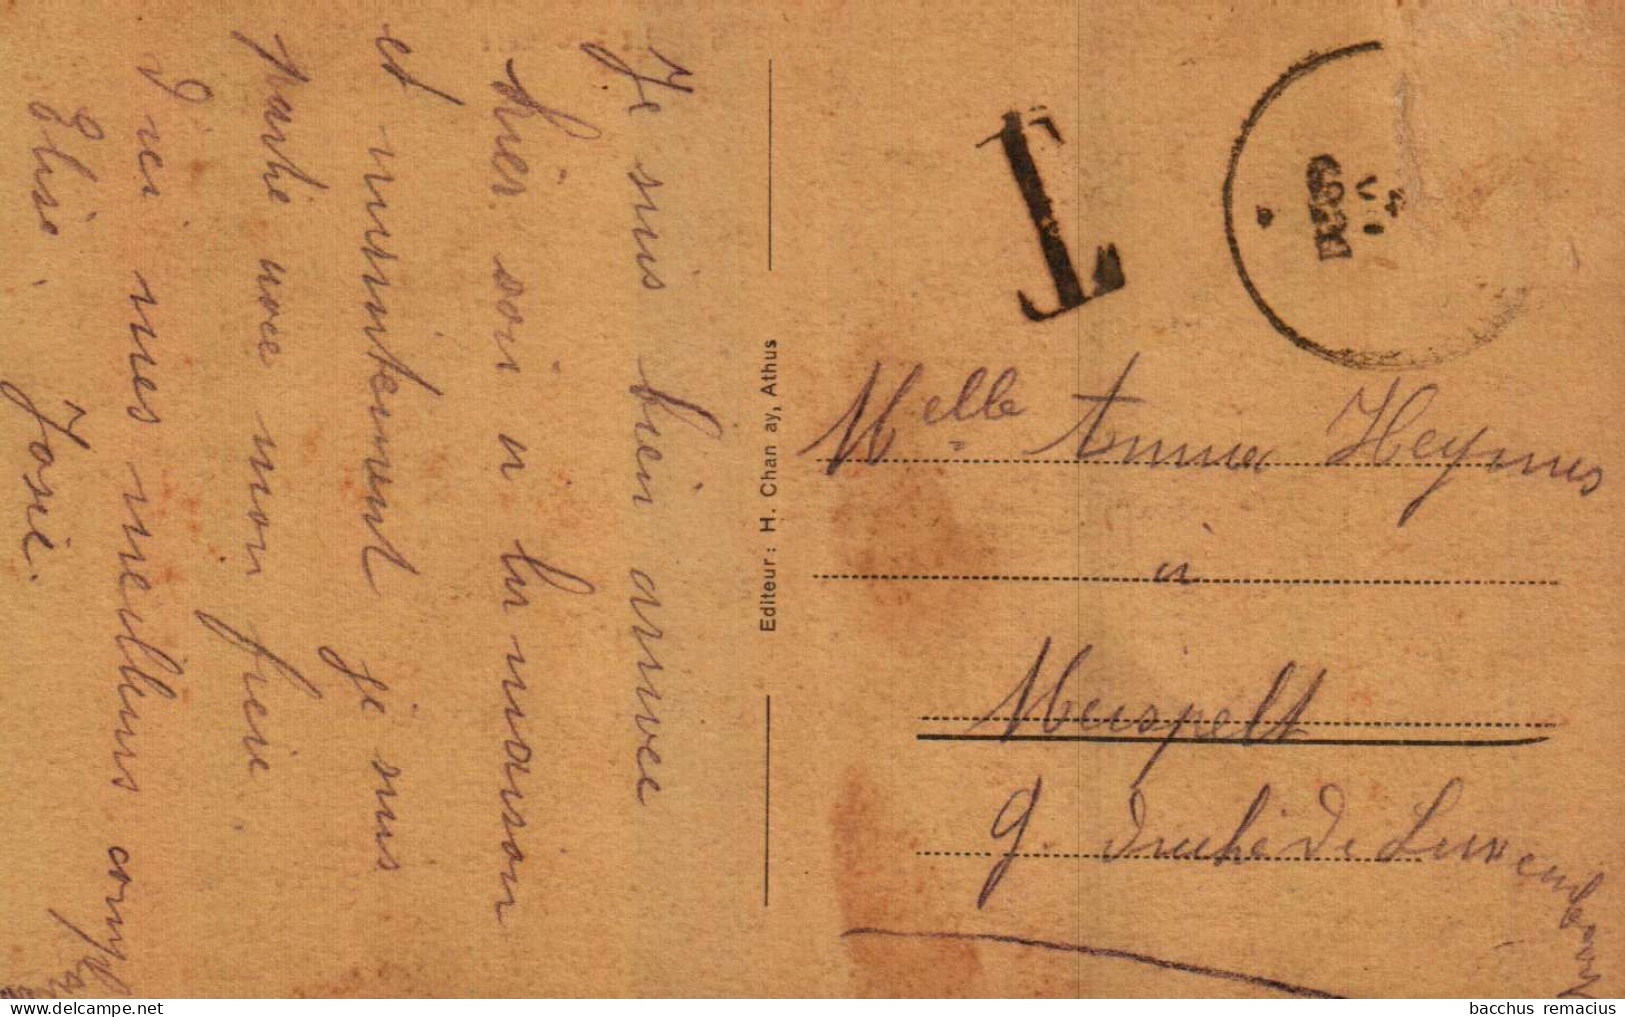 Je suis bien arrivée
hier soir a la maison
et maintenant je suis
parti avec mon frère.
Reçois mes meilleurs compl
Elise. Josie.
Editeur: H. Chan ay, Athus
T
Melle Anna Heymes
à
Merspelt
G. Duché de Luxembourg
bacchus remacius